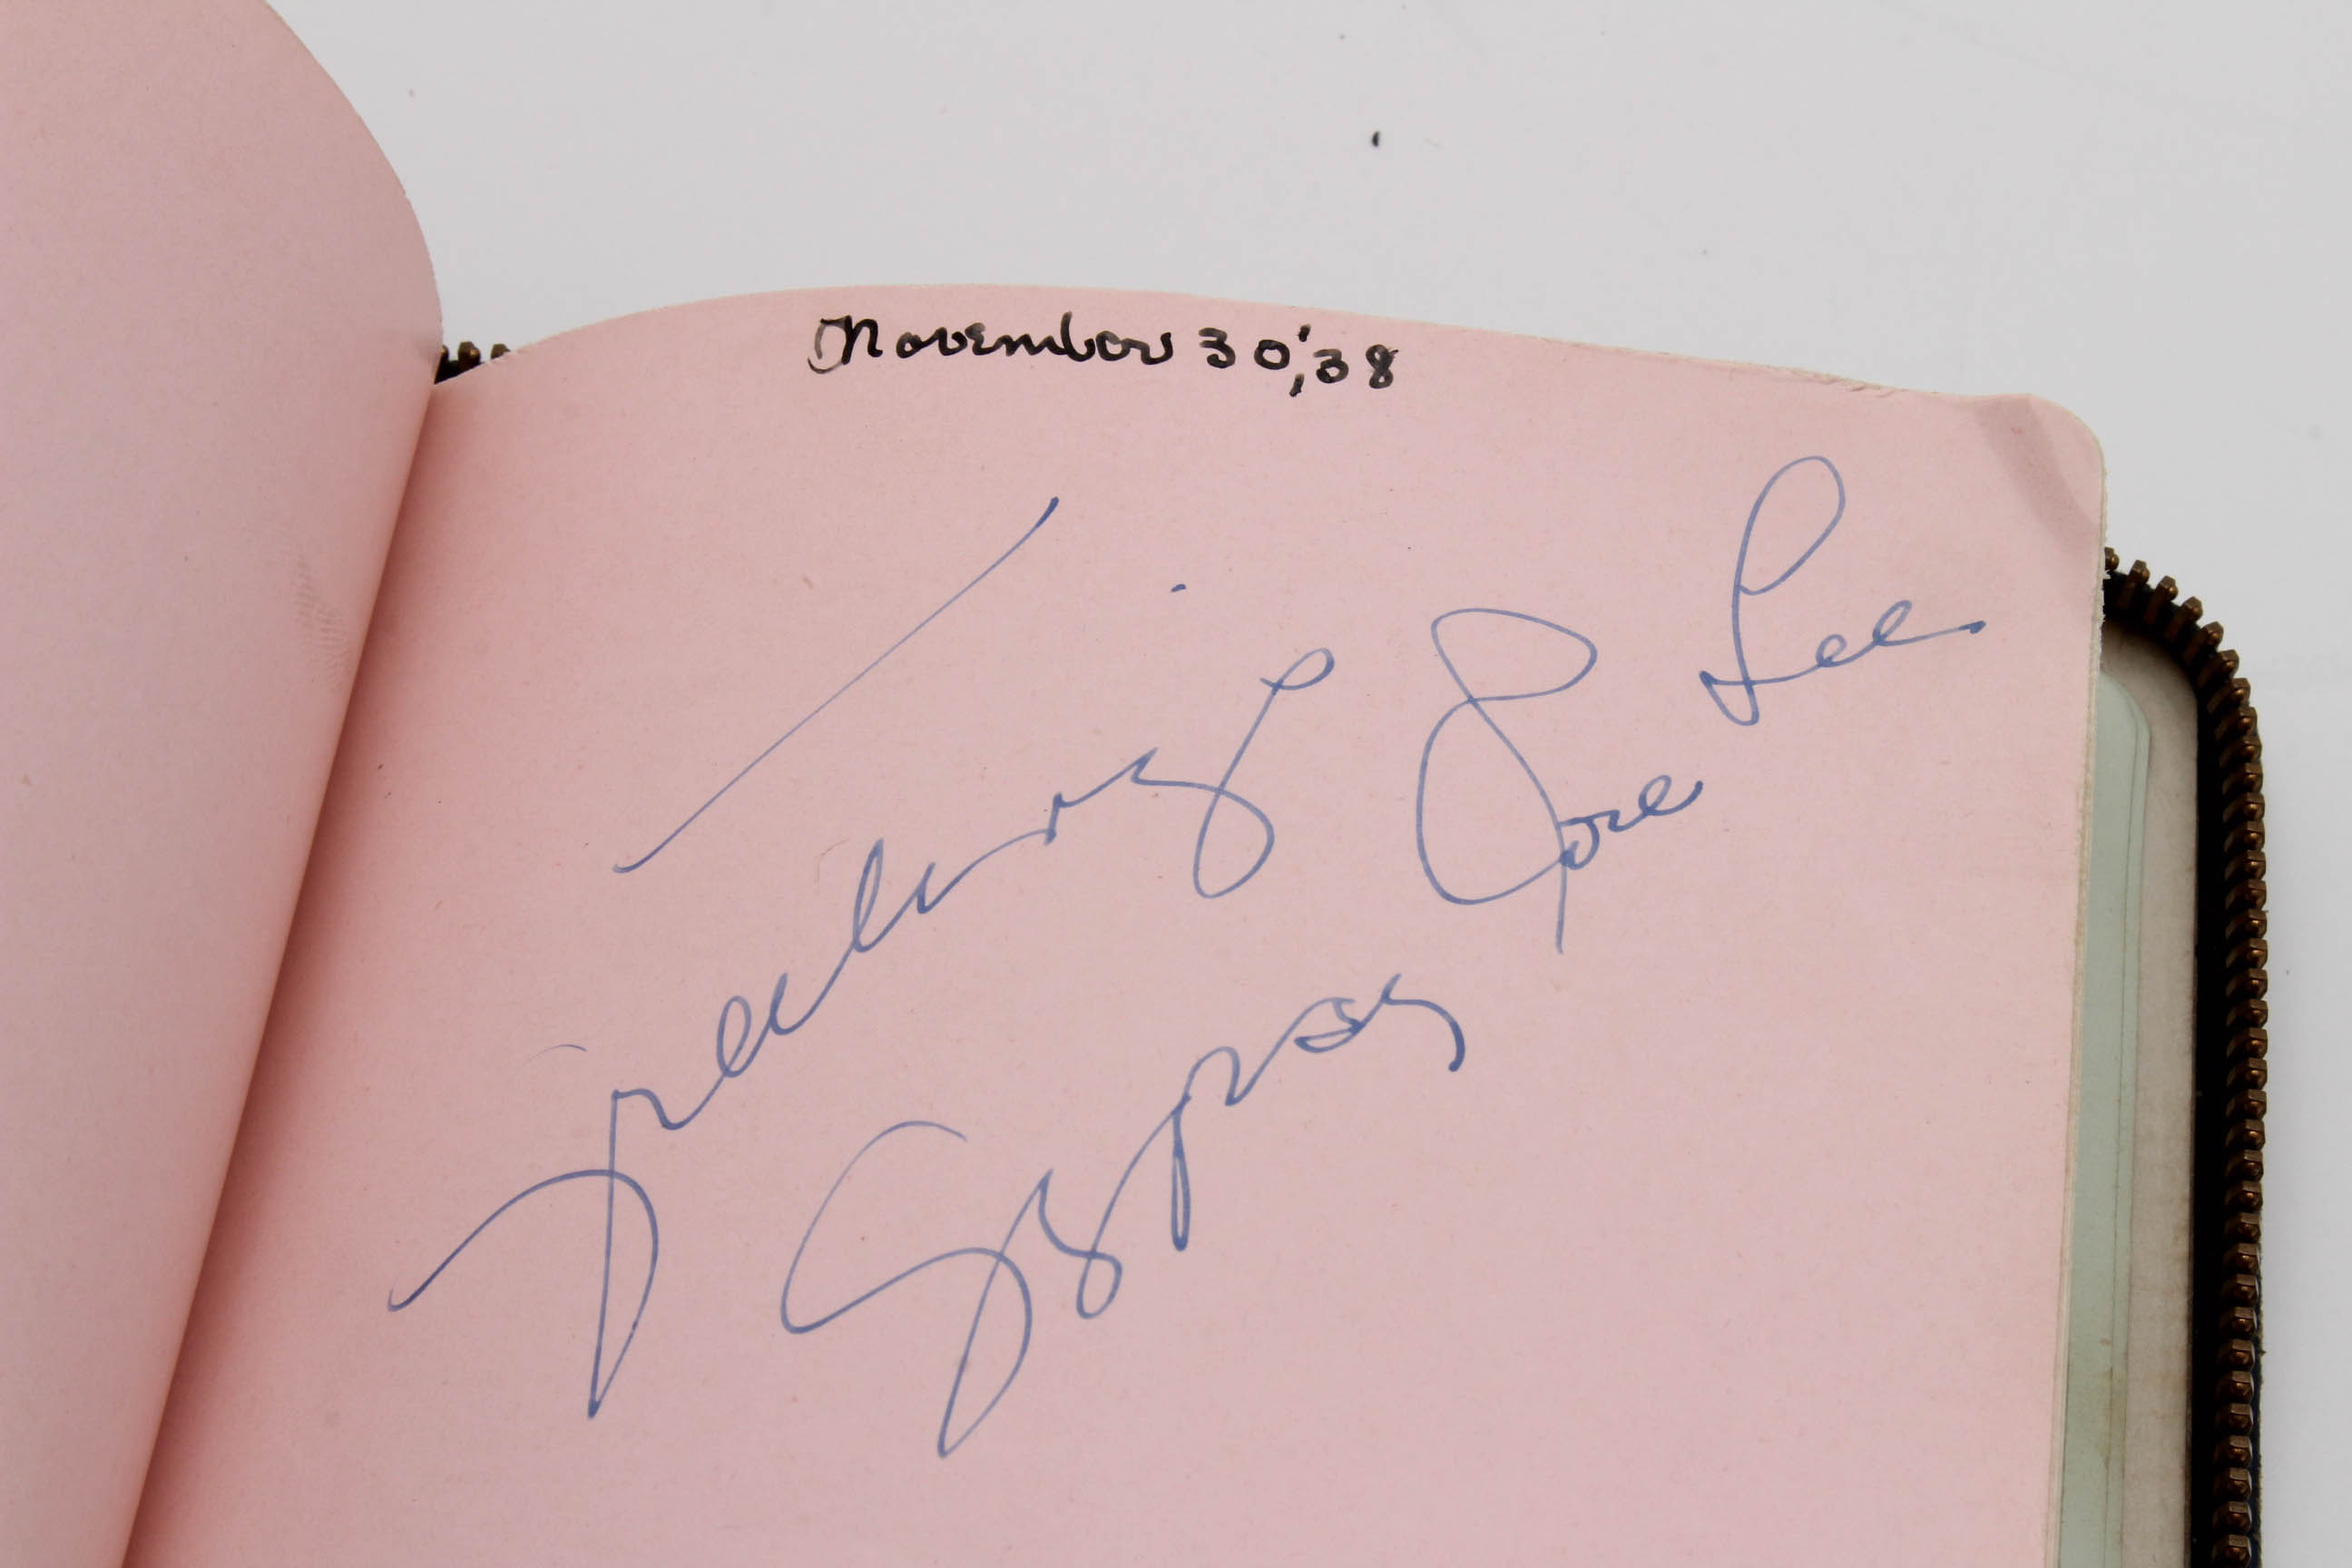 November 30,'38
Greetings
Gypsy Rose Lee